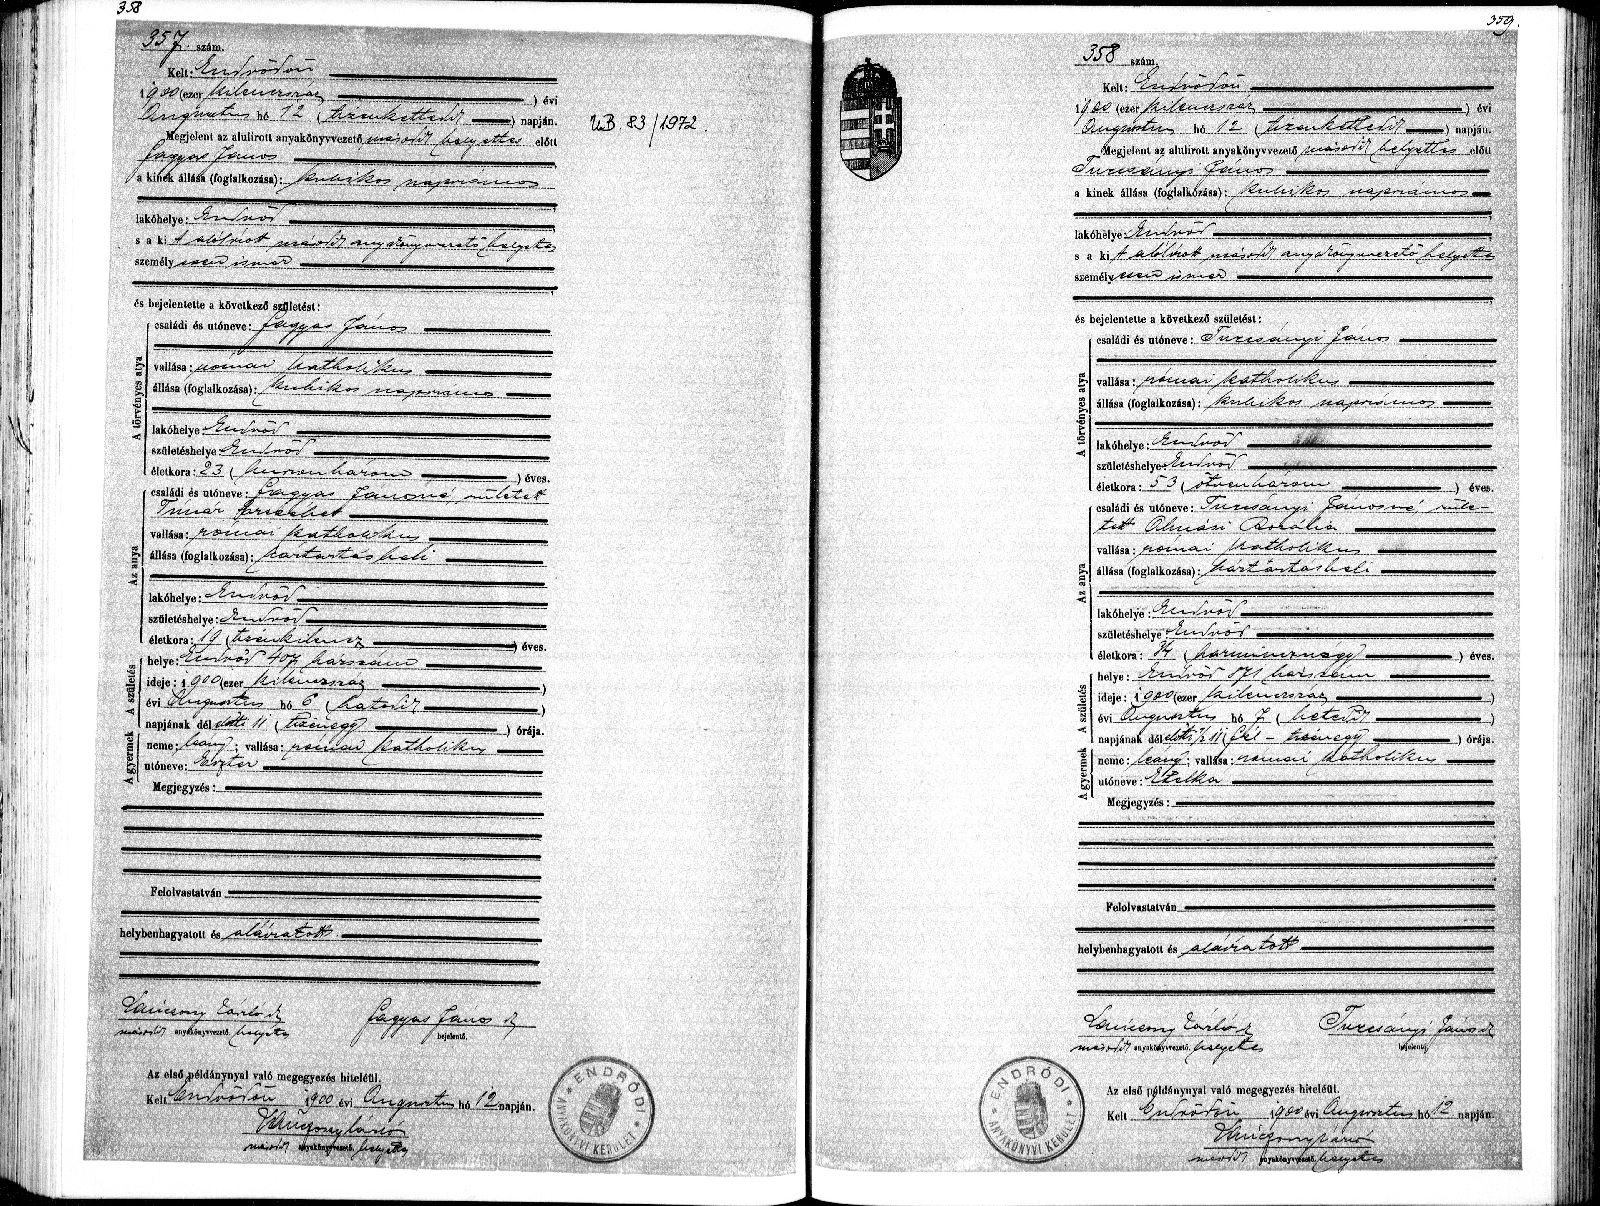 358
357. szám.
Kelt: Endrődön
1900 (ezer kilenczszáz ) évi
Augusztus hó 12 ( tizenkettedik ) napján.
Megjelent az alulirott anyakönyvvezető második helyettes előtt
János
a kinek állása (foglalkozása): kubikos napszámos
lakóhelye: Endrőd
s a ki t alólirott második anyakönyvvezető helyettes
személyesen ismer
és bejelentette a következő születést:
A törvényes atya
családi és utóneve: János
vallása: római katholikus
állása (foglalkozása): kubikos napszámos
lakóhelye: Endrőd
születéshelye: Endrőd
életkora: 23 ( huszonhárom ) éves.
Az anya
családi és utóneve: Jánosné, született
Timár Erzsébet
vallása: római katholikus
állása (foglalkozása): háztartásbeli
lakóhelye: Endrőd
születéshelye: Endrőd
életkora: 19 ( tizenkilencz ) éves.
A születés
helye: Endrőd 407 házszám
ideje: 1900 (ezer kilenczszáz )
évi Augusztus hó 6 ( hatodik )
napjának dél előtti 11 ( tizenegy ) órája.
A gyermek
neme: leány; vallása: római katholikus
utóneve: Eszter
Megjegyzés:
Felolvastatván
helybenhagyatott és aláíratott.
második anyakönyvvezető. helyettes
János
bejelentő.
Az első példánynyal való megegyezés hiteléül.
Kelt Endrődön 1900 évi Augusztus hó 12 napján.
második anyakönyvvezető. helyettes
ENDRŐDI
ANYAKÖNYVI KERÜLET
UB. 83/1972.
359.
358 szám.
Kelt: Endrődön
1900 (ezer kilenczszáz ) évi
Augusztus hó 12 ( tizenkettedik ) napján.
Megjelent az alulirott anyakönyvvezető második helyettes előtt
Turcsányi János
a kinek állása (foglalkozása): kubikos napszámos
lakóhelye: Endrőd
s a ki t alólirott második anyakönyvvezető helyettes
személyesen ismer
és bejelentette a következő születést:
A törvényes atya
családi és utóneve: Turcsányi János
vallása: római katholikus
állása (foglalkozása): kubikos napszámos
lakóhelye: Endrőd
születéshelye: Endrőd
életkora: 53 ( ötvenhárom ) éves.
Az anya
családi és utóneve: Turcsányi Jánosné, szüle-
tett Almási Rozália
vallása: római katholikus
állása (foglalkozása): háztartásbeli
lakóhelye: Endrőd
születéshelye Endrőd
életkora: 34 ( harmincznégy ) éves.
A születés
helye: Endrőd 871 házszám
ideje: 1900 (ezer kilenczszáz )
évi Augusztus hó 7 ( hetedik )
napjának dél előtti 1/2 11 ( fél - tizenegy ) órája.
A gyermek
neme: leány; vallása: római katholikus
utóneve: Etelka
Megjegyzés:
Felolvastatván
helybenhagyatott és aláíratott
második anyakönyvvezető. helyettes
Turcsányi János
bejelentő.
Az első példánynyal való megegyezés hiteléül.
Kelt Endrődön 1900 évi Augusztus hó 12 napján.
második anyakönyvvezető. helyettes
ENDRŐDI
ANYAKÖNYVI KERÜLET